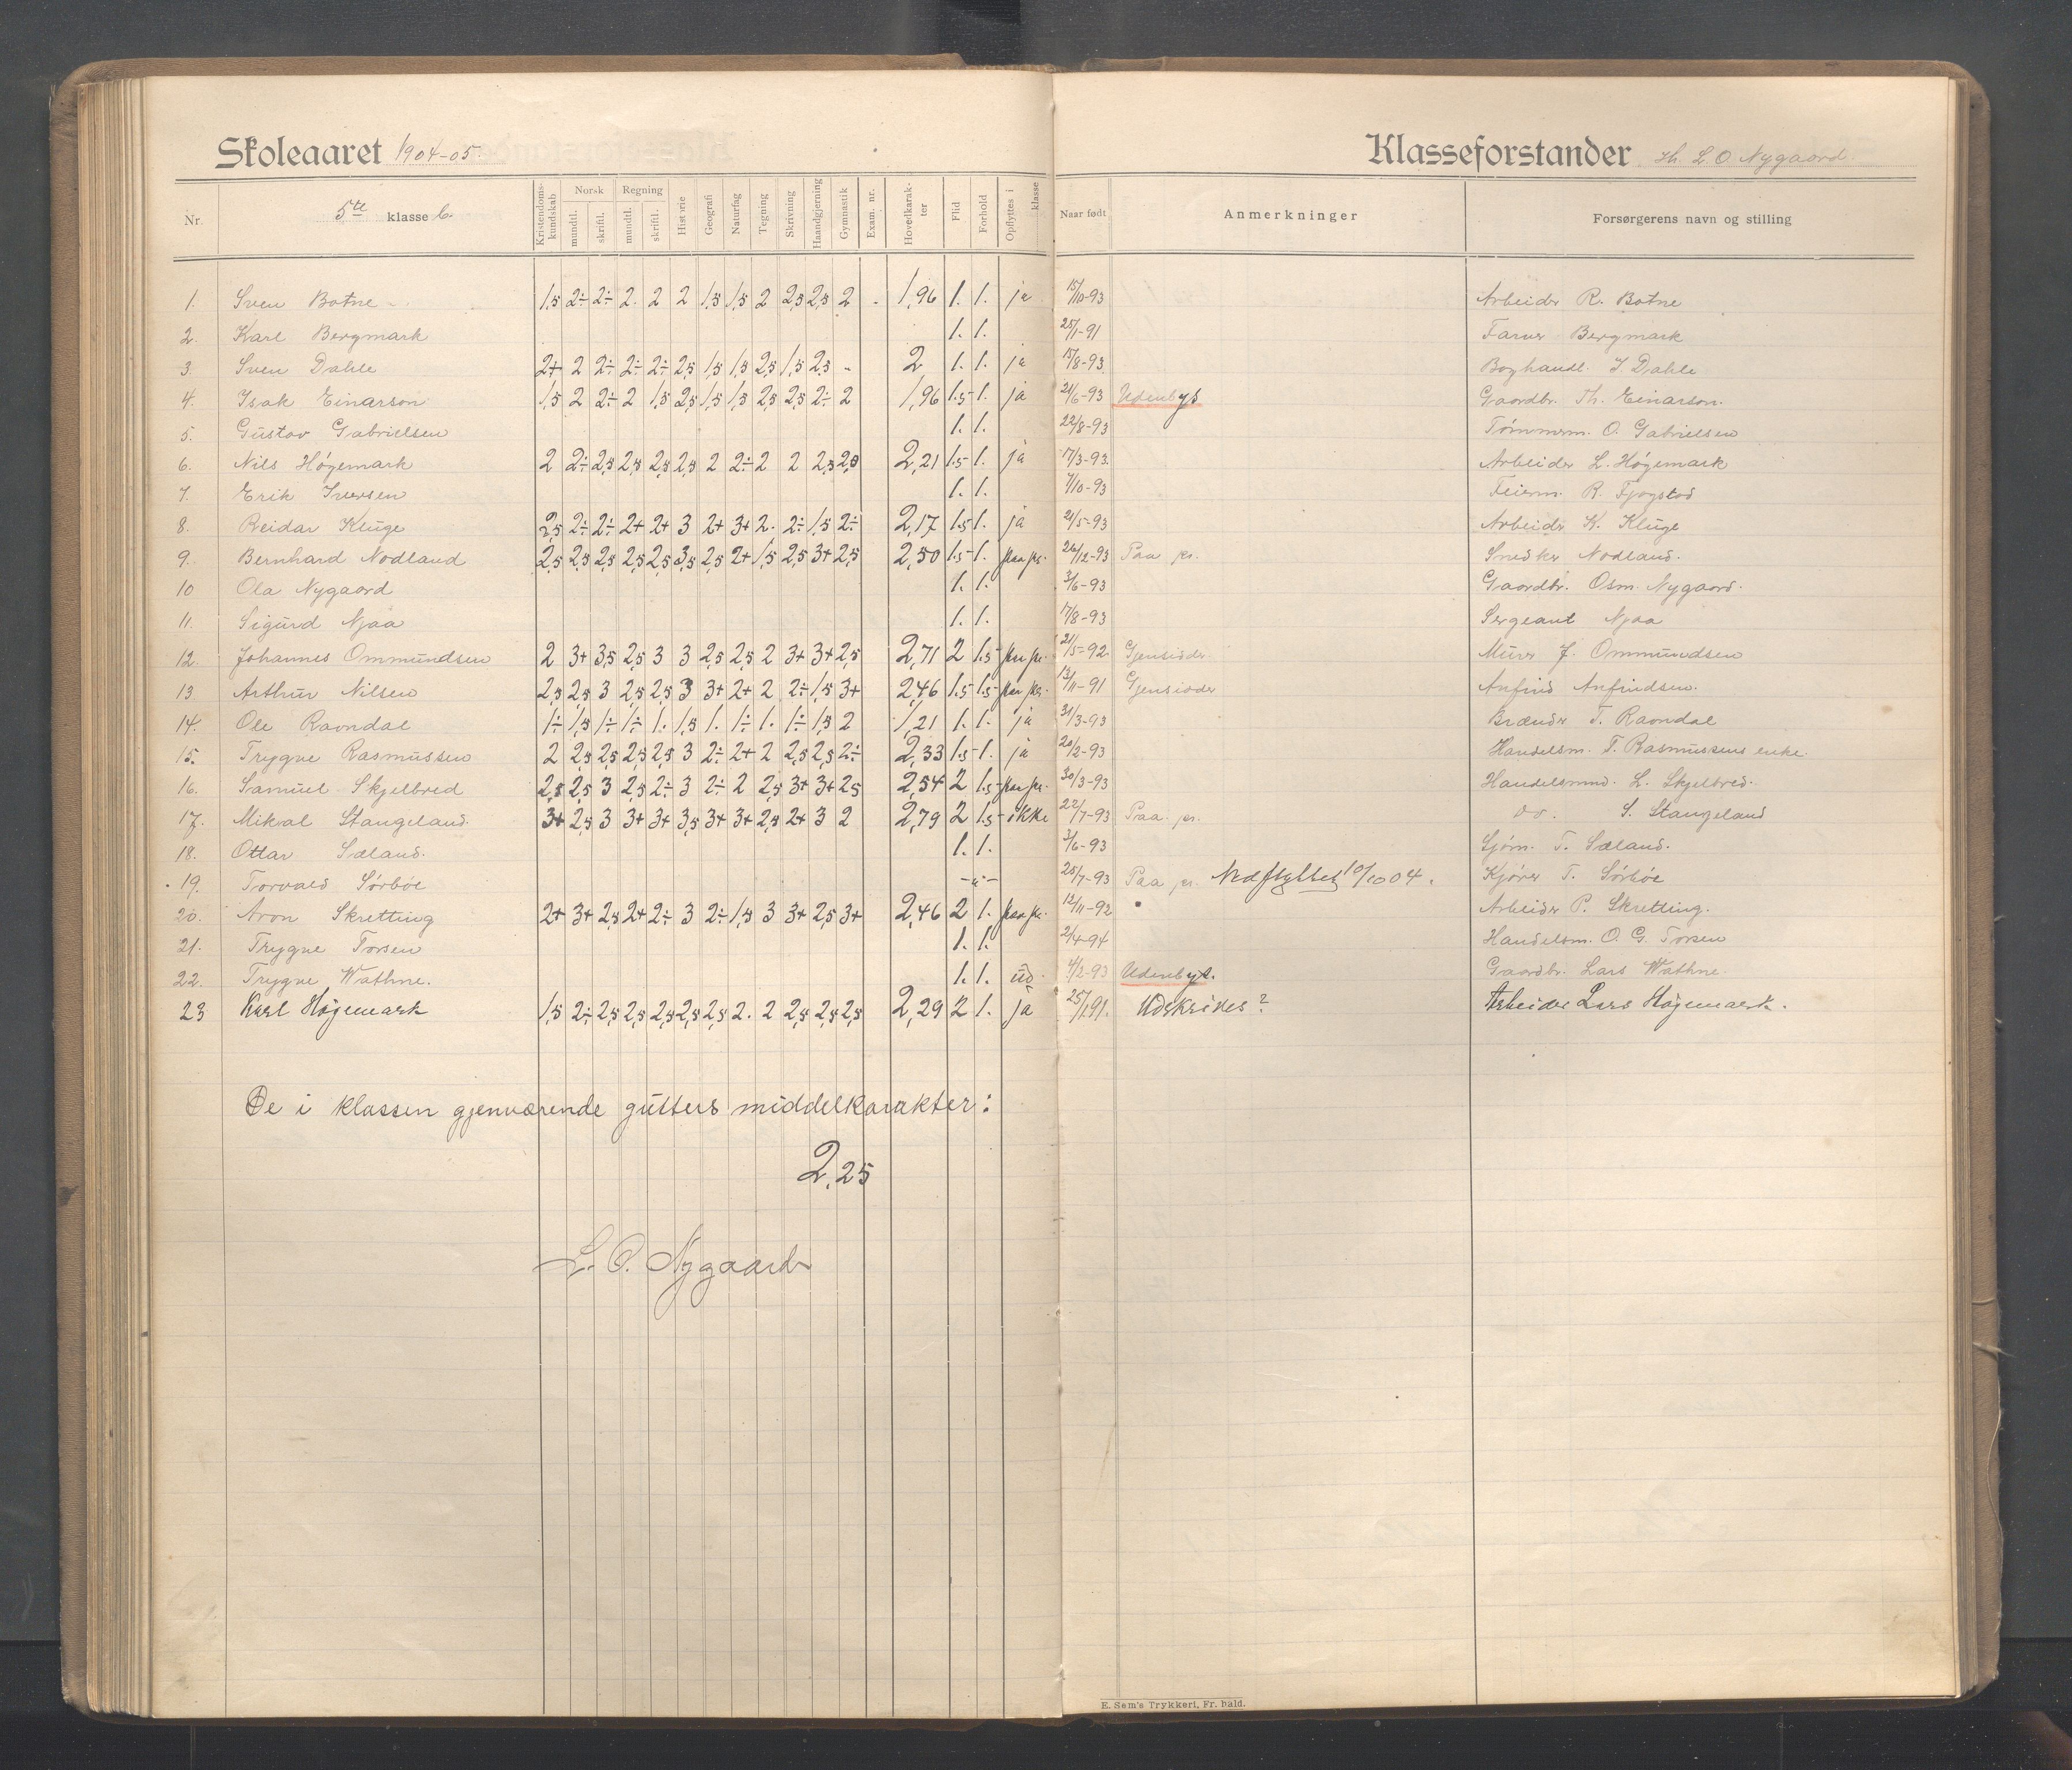 Skoleaaret 1904-05. Klasseforstander Th. L. O. Nygaard
Nr. 5te klasse b. Kristendomskundskab Norsk mundtl. skriftl. Regning mundtl. skriftl. Historie Geografi Naturfag Tegning Skrivning Haandgjerning Gymnastik Exam. nr. Hovedkarakter Flid Forhold Opflyttes i klasse Naar født Anmerkninger Forsørgerens navn og stilling
1. Sven Botne 1,5 2÷ 2÷ 2. 2 2 1,5 1,5 2 2,5 2,5 2 1,96 1. 1. ja 15/10-93 Arbeider R. Botne
2. Karl Bergmark 1. 1. 25/1-91 Farver Bergmark
3. Sven Dahle 2+ 2 2÷ 2÷ 2÷ 2,5 1,5 1,5 2,5 1,5 2,5 - 2 1. 1. ja 15/8-93 Boghandl. I. Dahle
4. Isak Einarson 1,5 2 2÷ 2 1,5 2,5 1,5 1,5 2,5 2,5 2÷ 2 1,96 1.5 1. ja 21/6-93 Udenbys Gaardbr. Th. Einarson.
5. Gustav Gabrielsen 1. 1. 22/8-93 Tømmerm. O. Gabrielsen
6. Nils Høgemark 2 2÷ 2,5 2,5 2,5 2,5 2 2÷ 2 2 2,5 2,5 2,21 1.5 1. ja 17/3-93. Arbeider L. Høgemark
7. Erik Iversen 1. 1. 7/10-93 Feierm. R. Fjogstad
8. Reidar Kluge 2,5 2÷ 2÷ 2+ 2+ 3 2+ 3+ 2. 2÷ 1,5 2÷ 2,17 1.5 1. ja 21/5-93 Arbeider K. Kluge
9. Bernhard Nodland 2,5 2,5 2,5 2,5 2,5 3,5 2,5 2+ 1,5 2,5 3+ 2,5 2,50 1.5 1. paa pr. 26/12-93 Paa pr. Snedker Nodland.
10 Ola Nygaard 1. 1. 3/6-93 Gaardbr. Osm. Nygaard.
11. Sigurd Njaa 1. 1. 17/8-93 Sergeant Njaa
12. Johannes Ommundsen 2 3+ 3,5 2,5 3 3 2,5 2,5 2 3+ 3+ 2,5 2,71 2 1.5 paa pr. 21/5-92 Gjensidder Murer J. Ommundsen
13 Arthur Nilsen 2,5 2,5 3 2,5 2,5 3 3+ 2+ 2 2÷ 1,5 3+ 2,46 1.5 1.5 paa pr. 13/11-91 Gjensidder Anfind Anfindsen.
14. Ole Ravndal 1÷ 1,5 1÷ 1÷ 1. 1,5 1. 1÷ 1. 1÷ 1,5 2 1,21 1. 1. ja 31/3-93 Brænder T. Ravndal
15. Trygve Rasmussen 2 2,5 2,5 2,5 2,5 3 2÷ 2+ 2 2,5 2,5 2÷ 2,33 1.5 1. ja 20/2-93 Handelsm. T. Rasmussens enke.
16. Samuel Skjelbred 2,5 2,5 3 2,5 2÷ 3 2÷ 2 2,5 3+ 3+ 2,5 2,54 2 1.5 paa pr. 30/3-93 Handelsmnd. L. Skjelbred.
17. Mikal Stangeland. 3+ 2,5 3 3+ 3+ 3,5 3+ 3+ 2,5 2+ 3 2 2,79 2 1.5 ikke 22/7-93 Paa pr. do. S. Stangeland
18. Ottar Sæland. 1. 1. 3/6-93 Gjørm. T. Sæland.
19. Torvald Sørbøe -"- 25/7-93 Paa pr. Nedflyttet 10/10 04. Kjører T. Sørbøe
20. Aron Skretting 2+ 3+ 2,5 2+ 2÷ 3 2÷ 1,5 3 3+ 2,5 3+ 2,46 2 1. paa pr. 12/11-92 Arbeider P. Skretting.
21. Trygve Torsen 1. 1. 2/4-94 Handelsm. O. G. Torsen
22. Trygve Wathne. 1. 1. ud. 4/2-93 Udenbys. Gaardbr. Lars Wathne
23 Karl Høgemark 1,5 2÷ 2,5 2,5 2,5 2,5 2,5 2. 2 2,5 2,5 2,5 2,29 2 1. ja 25/1 91. Udskrives? Arbeider Lars Høgemark.
De i klassen gjenværende gutters middelkarakter:
2,25
L. O. Nygaard
E. Sem's Trykkeri, Fr. hald.